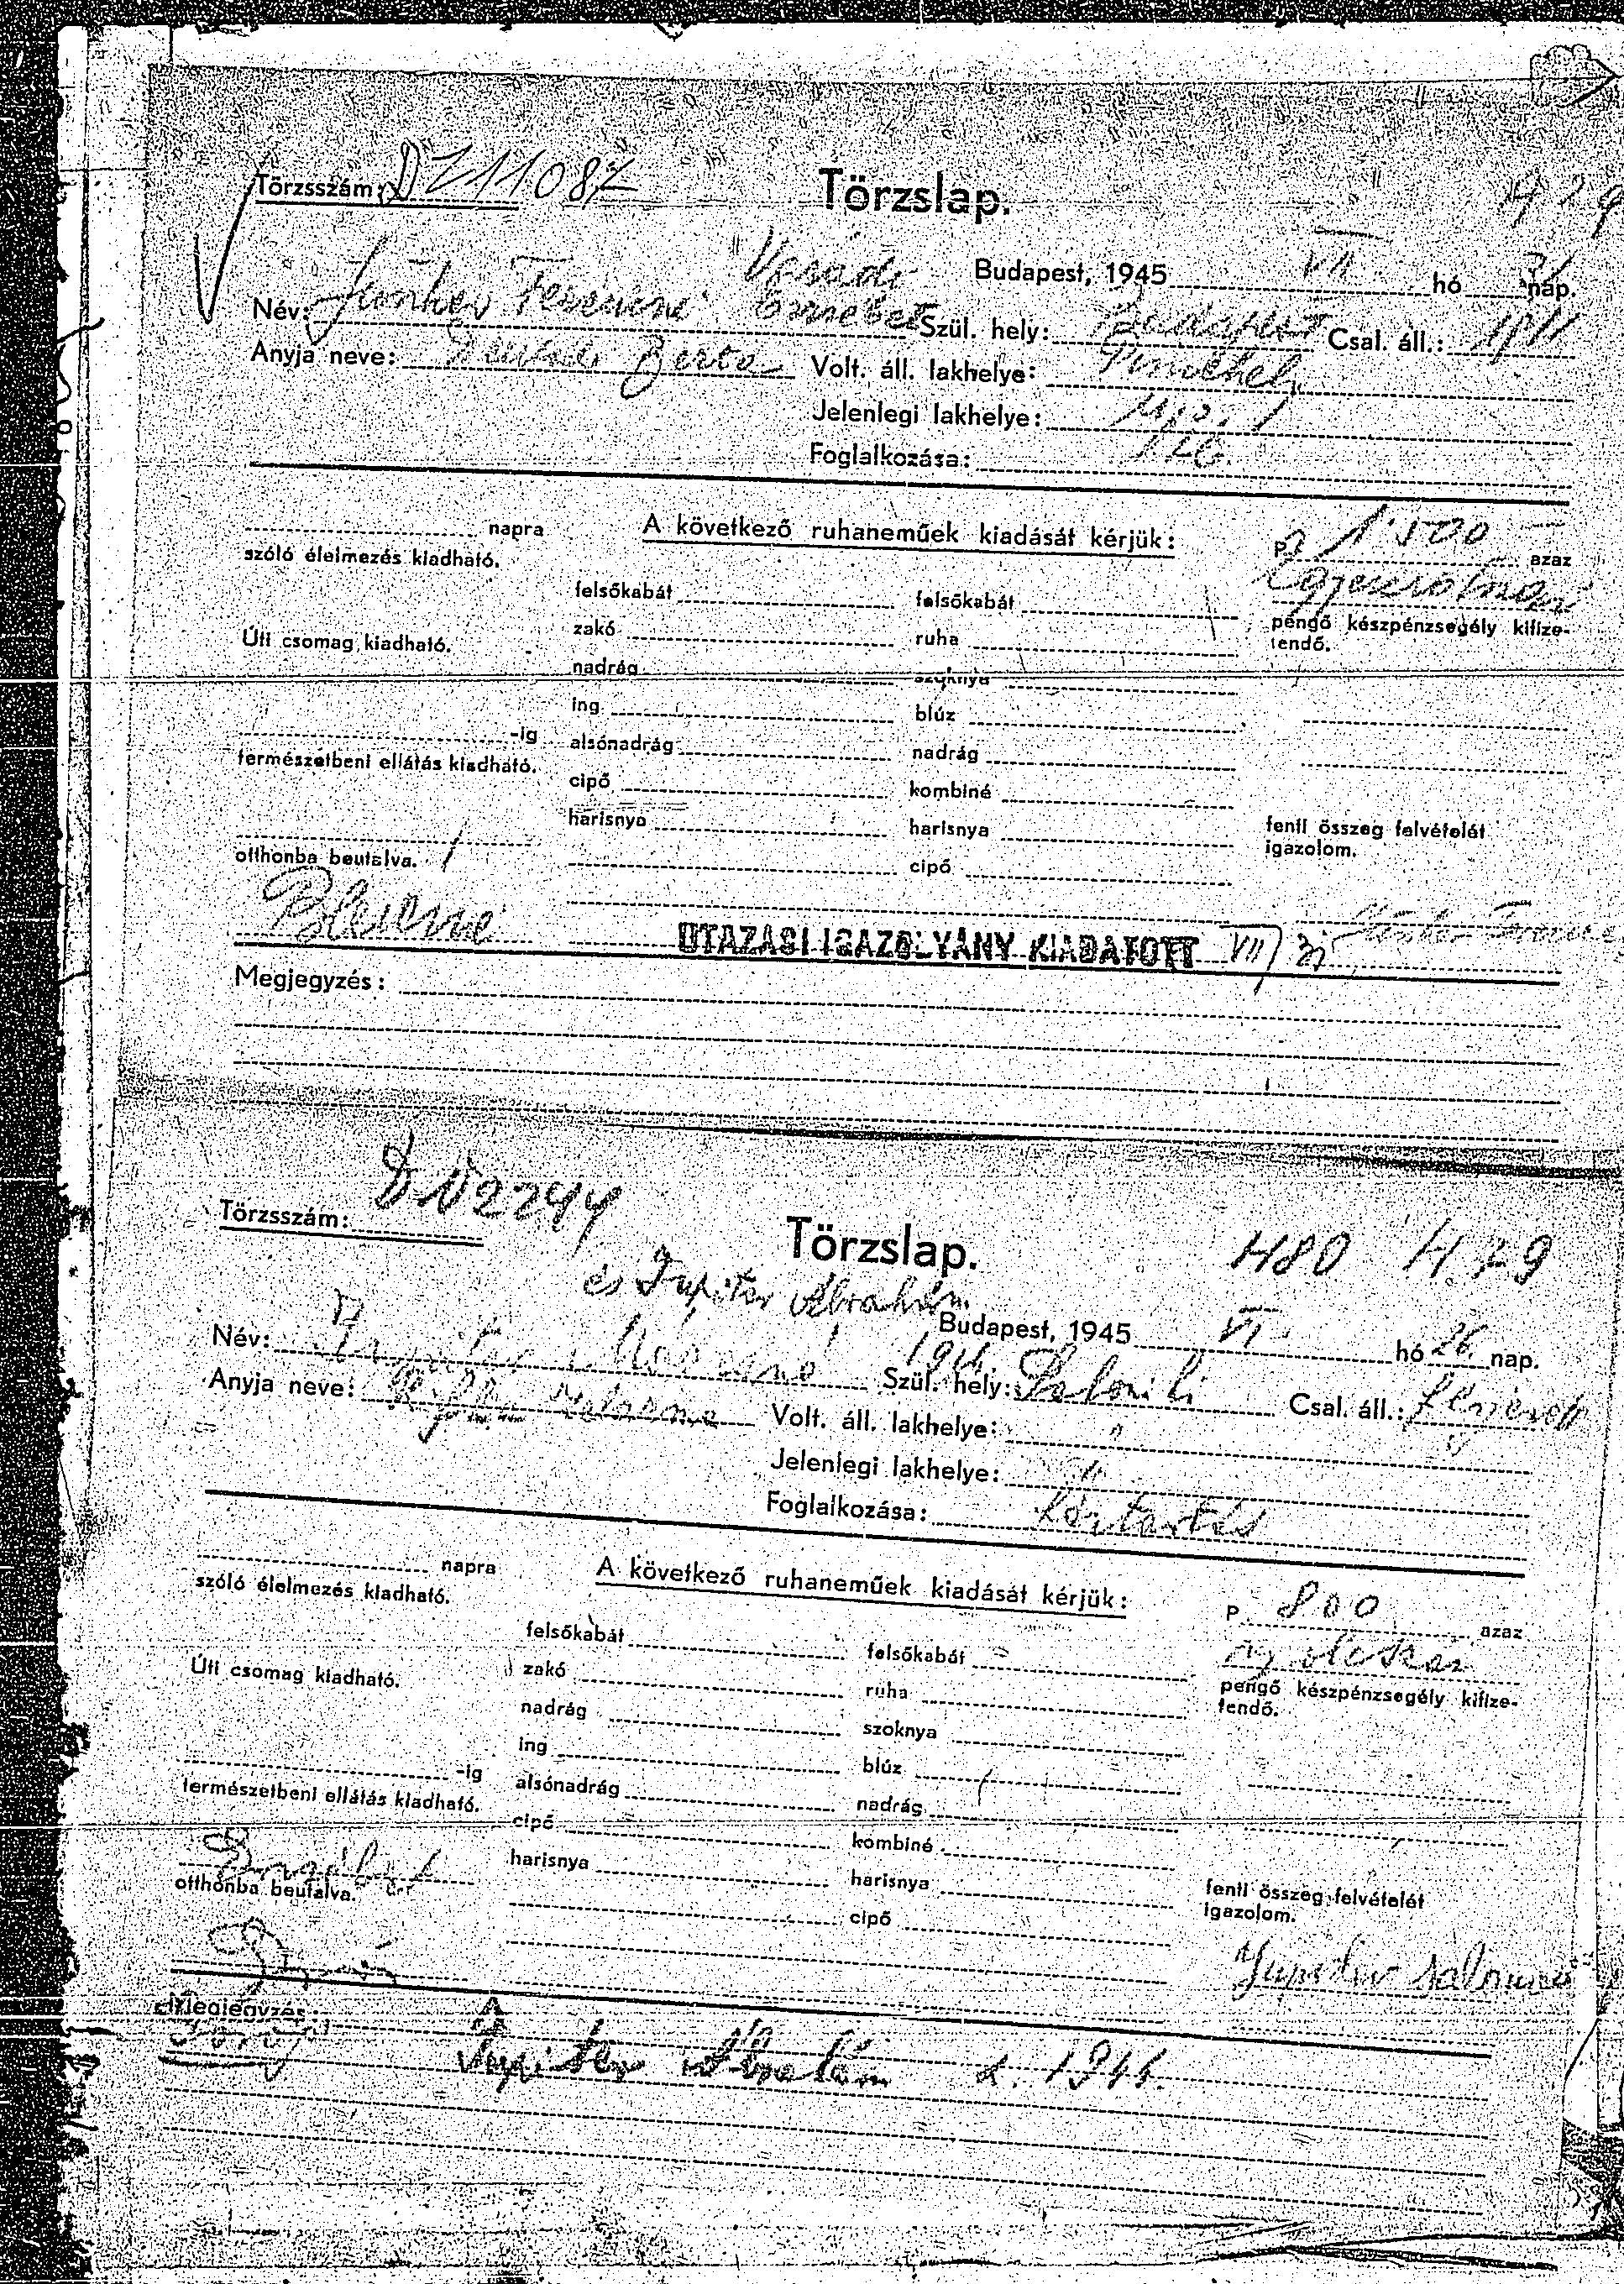 Törzsszám: DZ11087
Törzslap.
429
Budapest, 1945 VII hó 31 nap.
Váradi
Név: Junker Ferencné Erzsébet Szül. hely: Budapest Csal. áll.: 1911
Anyja neve: Berta Volt. áll. lakhelye:
Jelenlegi lakhelye:
Foglalkozása:
napra
szóló élelmezés kiadható.
A következő ruhaneműek kiadását kérjük:
P 1.500 azaz
Egyezerötszáz
pengő készpénzsegély kifize-
tendő.
felsőkabát felsőkabát
Úti csomag kiadható.
zakó ruha
nadrág szoknya
ing blúz
-ig
természetbeni ellátás kiadható.
alsónadrág nadrág
cipő kombiné
harisnya harisnya
fenti összeg felvételét
igazolom.
otthonba beutalva.
cipő
UTAZÁSI IGAZOLVÁNY KIADATOTT VII/31
Megjegyzés:
Törzsszám: DN2244
Törzslap.
480 429
és Jupiter Abrahám
Budapest, 1945 VI hó 26 nap.
Név: Jupiter 1911. Szül. hely: Saloniki Csal. áll.: férjezett
Anyja neve: Volt. áll. lakhelye: "
Jelenlegi lakhelye: "
Foglalkozása: háztartás
napra
szóló élelmezés kiadható.
A következő ruhaneműek kiadását kérjük:
P 800 azaz
nyolcszáz
pengő készpénzsegély kifize-
tendő.
felsőkabát felsőkabát
Úti csomag kiadható.
zakó ruha
nadrág szoknya
ing blúz
-ig
természetbeni ellátás kiadható.
alsónadrág nadrág
cipő kombiné
harisnya harisnya
fenti összeg felvételét
igazolom.
otthonba beutalva.
cipő
Megjegyzés:
Jupiter Abrahám